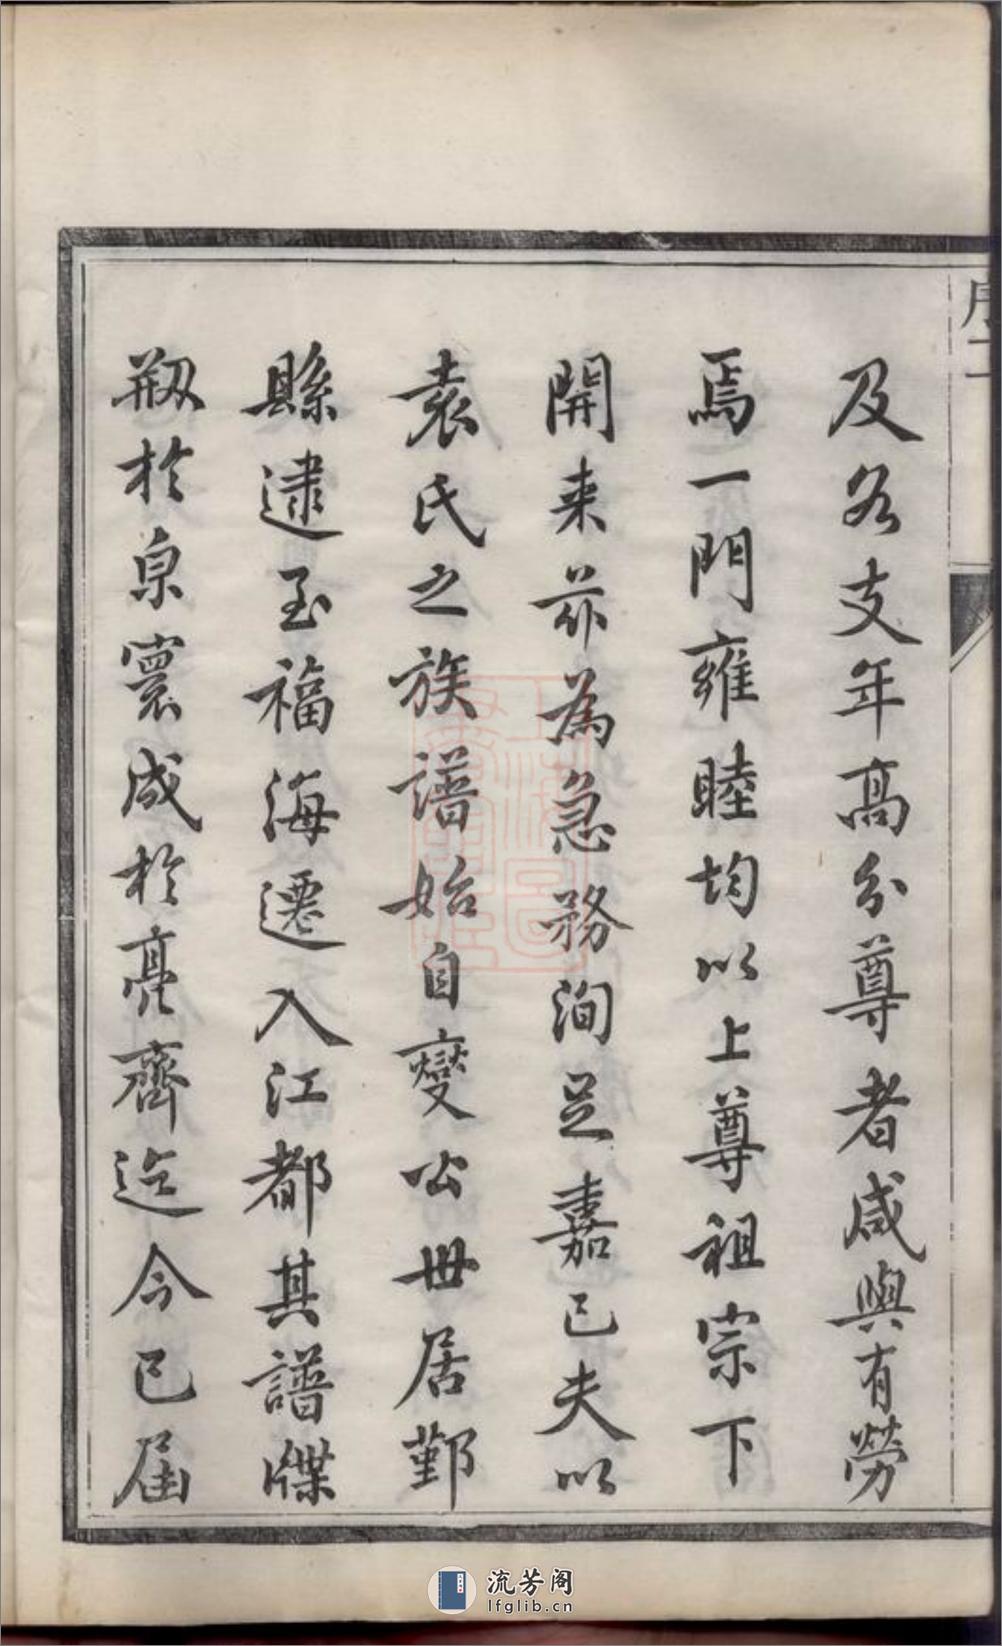 序二
及各支年高分尊者咸與有勞
焉一門雍睦均以上尊祖宗下
開来茲為急務洵足嘉已夫以
袁氏之族譜始自變公世居鄞
縣逮至福海遷入江都其譜牒
剏於泉寰成於亮齊迄今已届
流芳阁
lfglib.cn